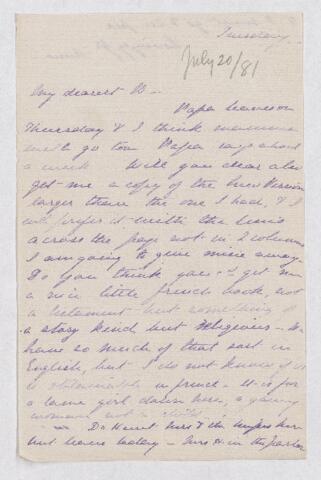 Tuesday
July 20/81
My dearest B -
Papa leaves on
Thursday & I think mamma
will go too Papa says about
a week Will you dear also
get me a copy of the New Version
larger than the one I had, & I
will prefer it with the lines
across the page not in 2 columns
I am going to give mine away.
Do you think you could get me
a nice little french book, not
a testament but something of
a story kind but Religious - We
have so much of that sort in
English, but I do not know if it
is obtainable in french - It is for
a lame girl down here, a young
woman not a child.
Dr Hunt Mrs & the Misses
Hunt leave today - Mrs H in the parlor